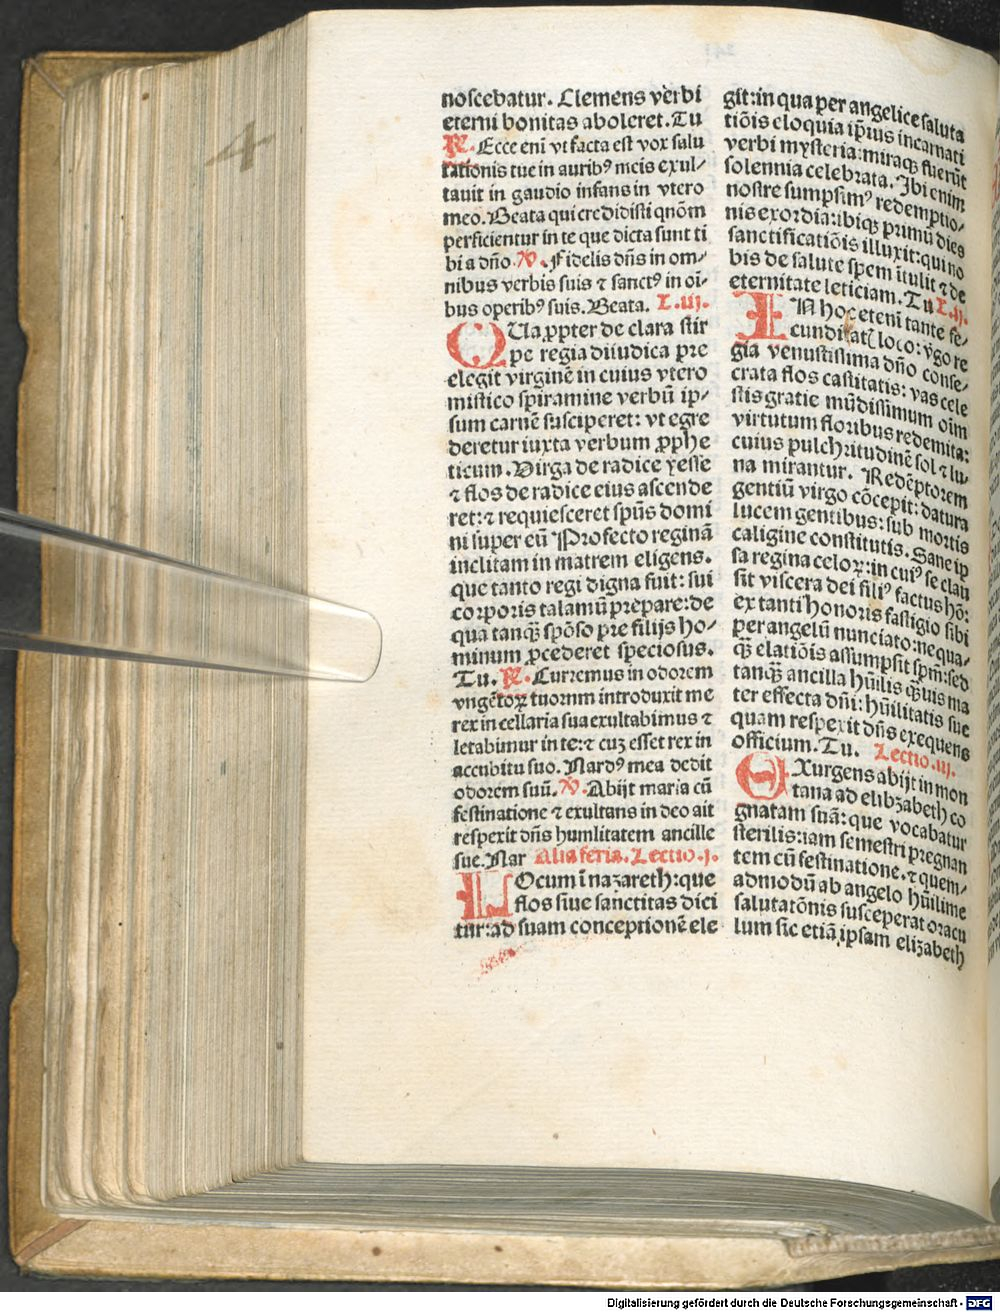 noscebatur. Clemens verbi
eterni bonitas aboleret. Tu
℟. Ecce eni vt facta est vox salu
tationis tue in auribꝰ meis exul-
tauit in gaudio infans in vtero
meo. Beata qui credidisti qm̄
perficientur in te que dicta sunt ti
bi a dño. ℣. Fidelis dñs in om-
nibus verbis suis ⁊ sanctꝰ in oı̄-
bus operibꝰ suis. Beata. L. ij.
QUia ꝓpter de clara stir
pe regia diiudica pre
elegit virginē in cuius vtero
mistico spiramine verbū ip-
sum carnē susciperet: vt egre
deretur iuxta verbum ꝓphe
ticum. Virga de radice yesse
⁊ flos de radice eius ascende
ret: ⁊ requiesceret spūs domi
ni super eū Profecto reginā
inclitam in matrem eligens.
que tanto regi digna fuit: sui
corporis talamū prepare: de
qua tanꝙ̄ spōso pre filijs ho-
minum ꝓcederet speciosus.
Tu. ℟. Curremus in odorem
vngētoꝝ tuorum introduxit me
rex in cellaria sua exultabimus ⁊
letabimur in te: ⁊ cuꝫ esset rex in
accubitu suo. Nardꝰ mea dedit
odorem suū. ℣. Abijt maria cū
festinatione ⁊ exultans in deo ait
respexit dñs humlitatem ancille
sue. Nar Alia feria. Lectio. j.
LOcum ī nazareth: que
flos siue sanctitas dici
tur: ad suam conceptionē ele
git: in qua per angelice saluta
tiōis eloquia ip̄ius incarnati
verbi mysteria: miraqꝫ fuerūt
solennia celebrata. Ibi enim
nostre sumpsimꝰ redemptio-
nis exordia: ibiqꝫ primū dies
sanctificatiōis illuxit: qui no
bis de salute spem ītulit ⁊ de
eternitate leticiam. Tu L. ij.
IN hoc etenī tante fe-
cundi loco: vgo re
gia venustissima dño conse-
crata flos castitatis: vas cele
stis gratie mūdissimum oīm
virtutum floribus redemita:
cuius pulchritudinē sol ⁊ lu-
na mirantur. Redēptorem
gentiū virgo cōcepit: datura
lucem gentibus: sub mortis
caligine constitutis. Sane ip
sa regina celoꝝ: in cuiꝰ se clau
sit viscera dei filiꝰ factus hō:
ex tanti honoris fastigio sibi
per angelū nunciato: ne qua-
ꝙ̄ elatiōis assumpsit spm̄: sed
tanꝙ̄ ancilla hūilis ꝙ̄uis ma
ter effecta dñi: hūilitatis sue
quam respexit dñs exequens
officium. Tu. Lectio. iij.
EXurgens abijt in mon
tana ad elibzabeth co
gnatam suā: que vocabatur
sterilis: iam semestri pregnan
tem cū festinatione. ⁊ quem-
admodū ab angelo hūilime
salutatōnis susceperat oracu
lum sic etiā ipsam elizabeth
Digitalisierung gefördert durch die Deutsche Forschungsgemeinschaft - DFG